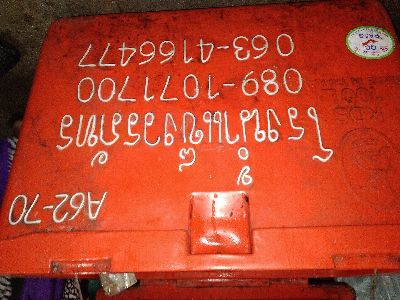 A62-70
โรงน้ำแข็งวรภัทร
089-1071700
063-4166477
QC
PASS